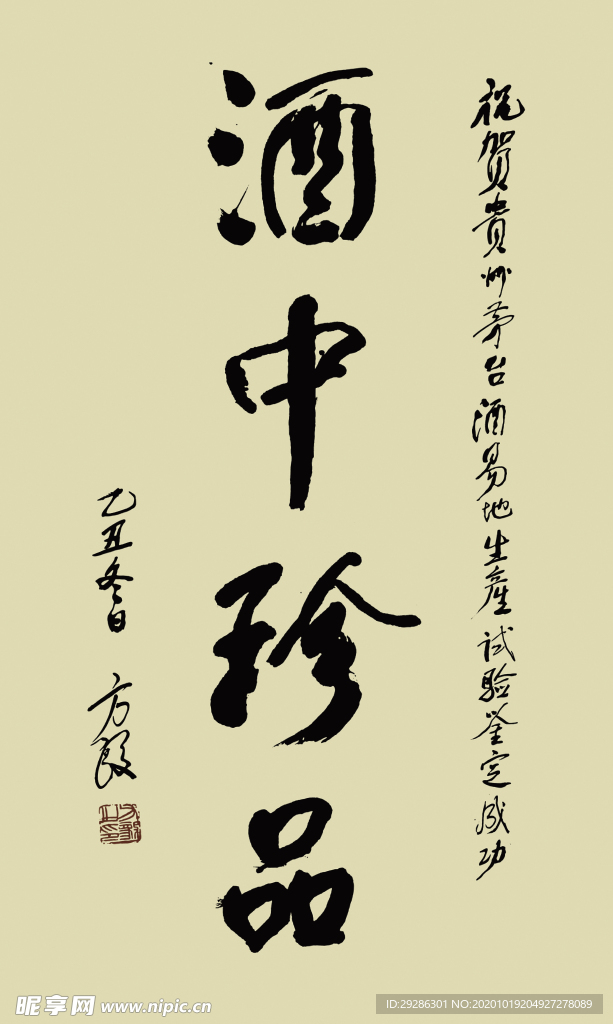 祝賀貴州茅台酒易地生產试验鉴定成功
酒中珍品
乙丑冬日 方毅
昵享网 www.nipic.cn
ID:29286301 NO:20201019204927278089